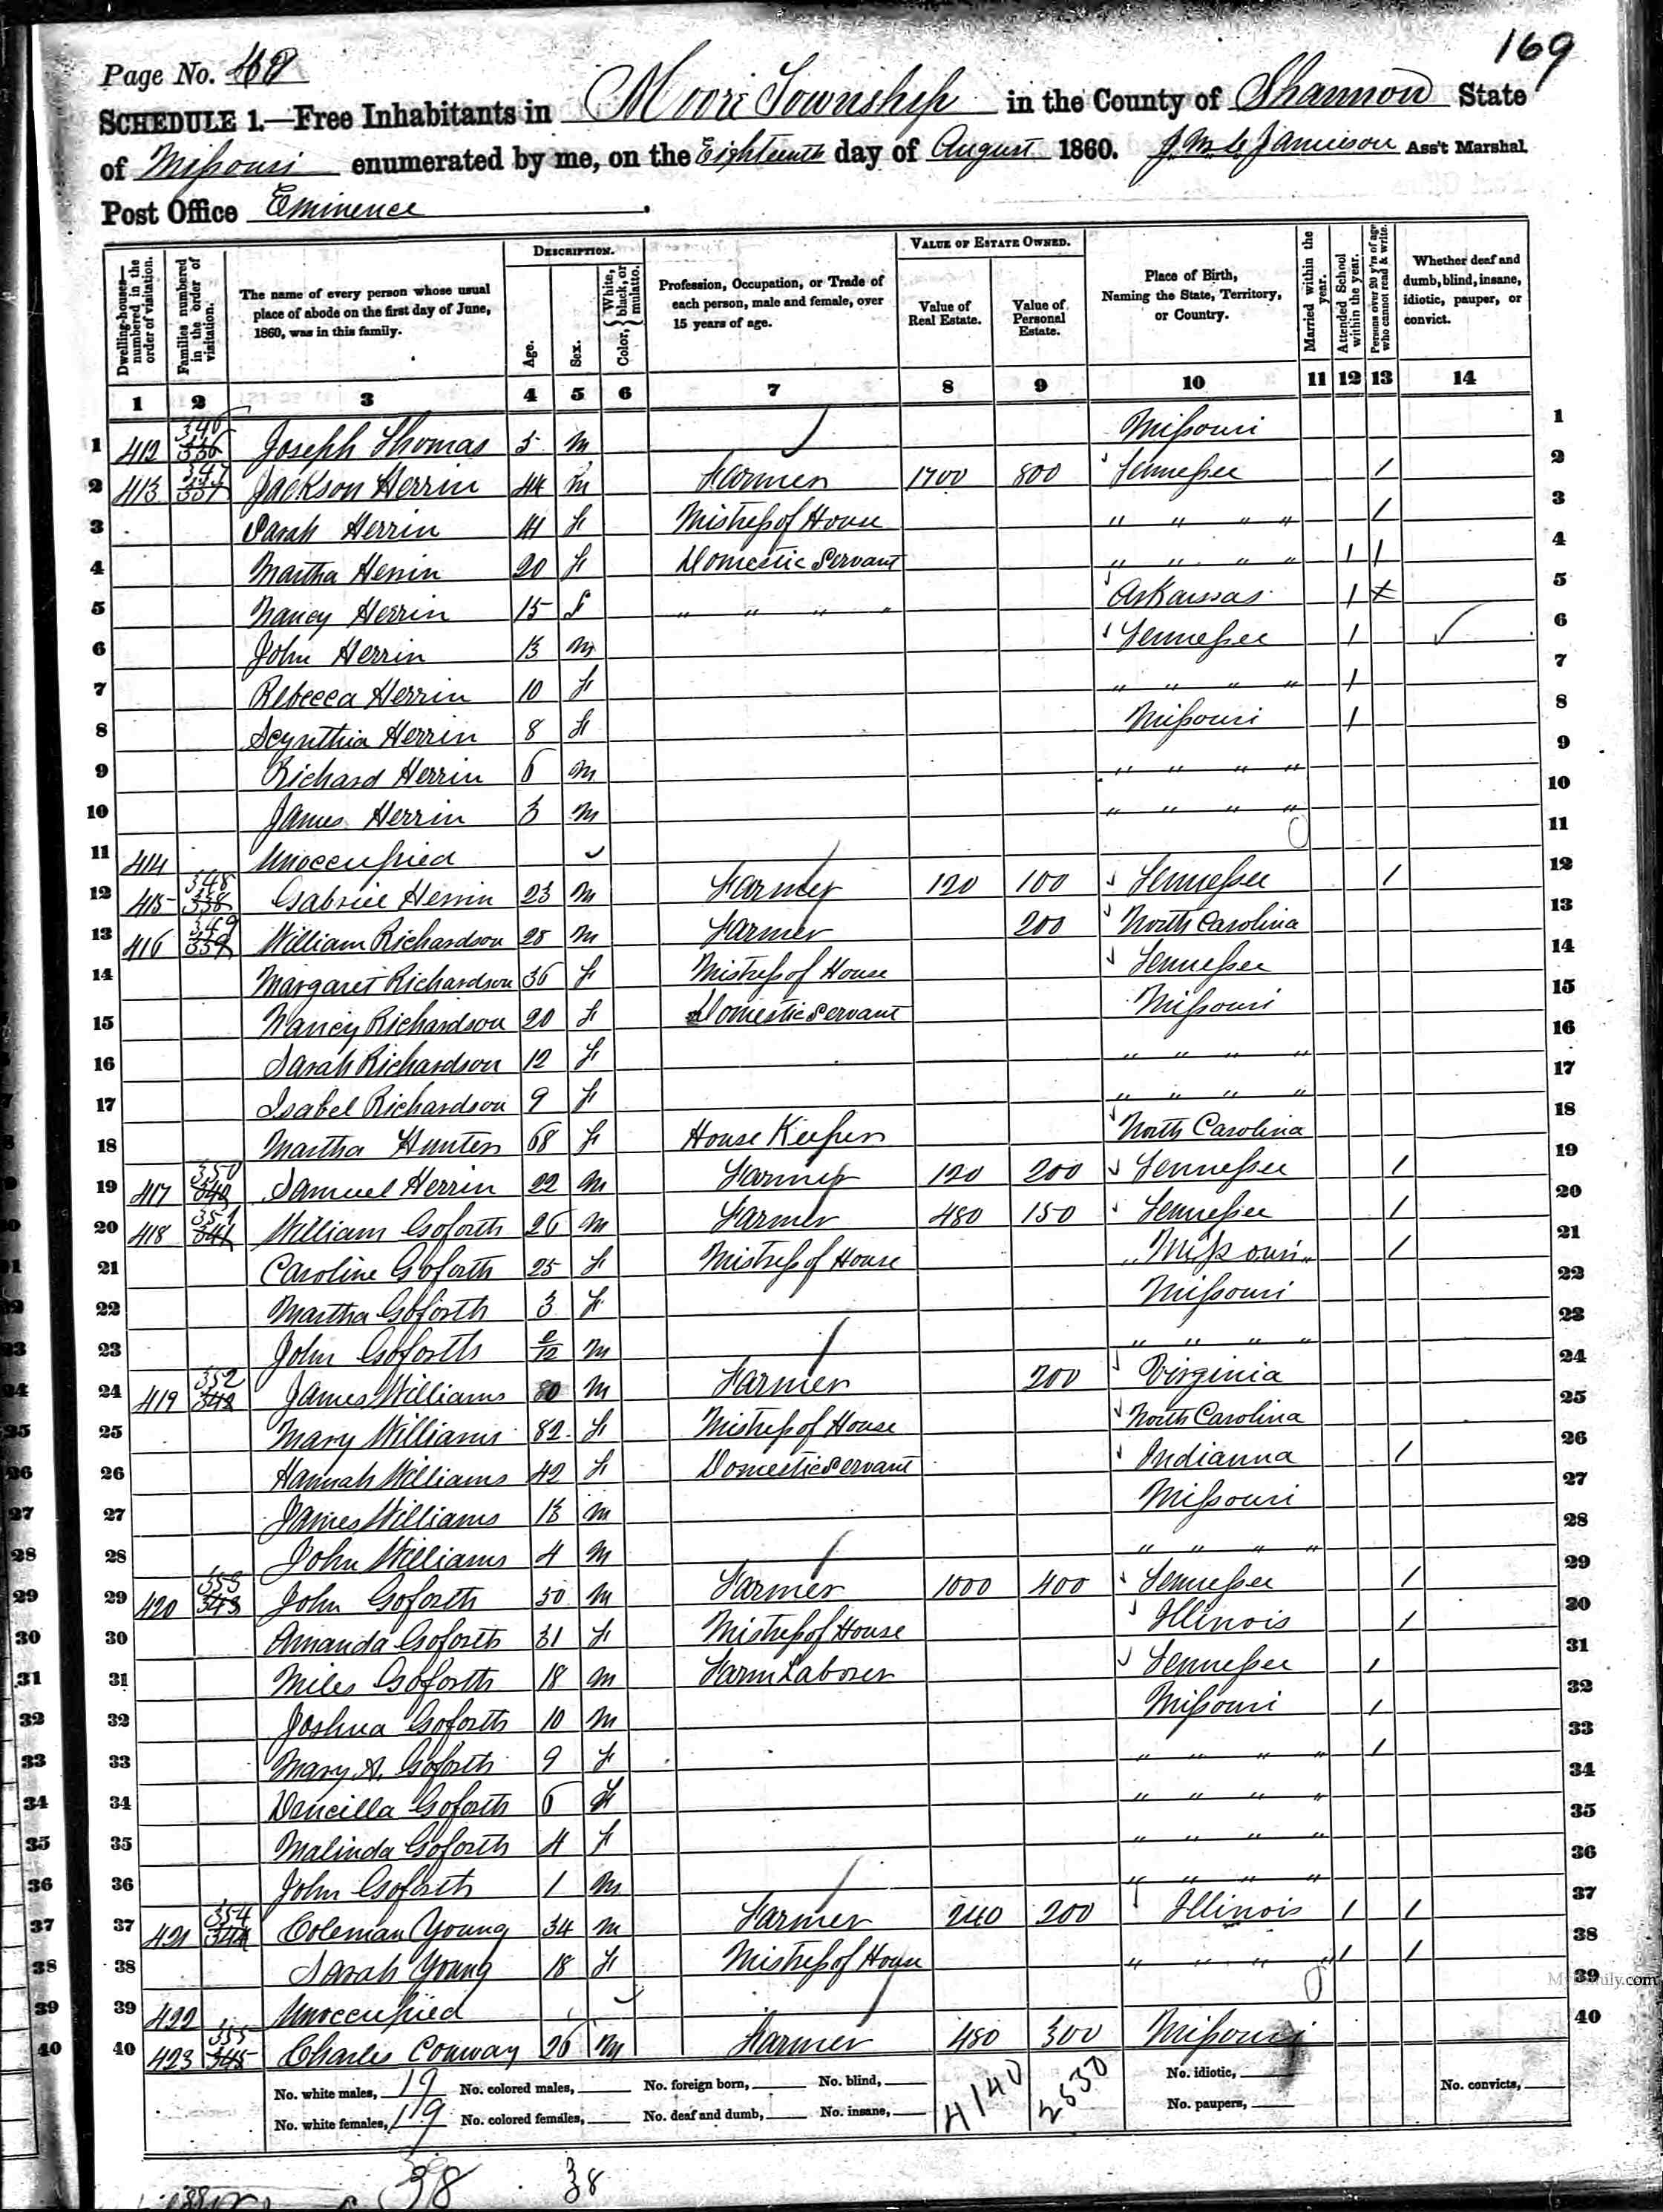 169
Page No. 48
SCHEDULE 1.—Free Inhabitants in Moore Township in the County of Shannon State
of Missouri enumerated by me, on the Eighteenth day of August 1860. J. M. C. Jamieson Ass't Marshal.
Post Office Eminence.
Dwelling-houses—numbered in the order of visitation.
Families numbered in the order of visitation.
The name of every person whose usual place of abode on the first day of June, 1860, was in this family.
DESCRIPTION.
Age.
Sex.
Color, { White, black, or mulatto.
Profession, Occupation, or Trade of each person, male and female, over 15 years of age.
VALUE OF ESTATE OWNED.
Value of Real Estate.
Value of Personal Estate.
Place of Birth, Naming the State, Territory, or Country.
Married within the year.
Attended School within the year.
Persons over 20 y'rs of age who cannot read & write.
Whether deaf and dumb, blind, insane, idiotic, pauper, or convict.
1 2 3 4 5 6 7 8 9 10 11 12 13 14
1 412 346 336 Joseph Thomas 5 M Missouri 1
2 413 347 337 Jackson Herrin 44 M Farmer 1700 800 Tennessee / 2
3 Sarah Herrin 41 F Mistress of House " " " " / 3
4 Martha Herrin 20 F Domestic Servant " " " " / / 4
5 Nancy Herrin 15 F " " " " Arkansas / 5
6 John Herrin 13 M Tennessee / 6
7 Rebecca Herrin 10 F " " " " / 7
8 Scynthia Herrin 8 F Missouri / 8
9 Richard Herrin 6 M " " " " 9
10 James Herrin 3 M " " " " 10
11 414 Unoccupied 11
12 415 348 338 Gabriel Herrin 23 M Farmer 120 100 Tennessee / 12
13 416 349 339 William Richardson 28 M Farmer 200 North Carolina 13
14 Margaret Richardson 36 F Mistress of House Tennessee 14
15 Nancy Richardson 20 F Domestic Servant Missouri 15
16 Sarah Richardson 12 F " " " " 16
17 Isabel Richardson 9 F " " " " 17
18 Martha Hunter 68 F House Keeper North Carolina 18
19 417 350 340 Samuel Herrin 22 M Farmer 120 200 Tennessee / 19
20 418 351 341 William Goforth 26 M Farmer 480 150 Tennessee / 20
21 Caroline Goforth 25 F Mistress of House Missouri / 21
22 Martha Goforth 3 F Missouri 22
23 John Goforth /12 M " " " " 23
24 419 352 342 James Williams 80 M Farmer 200 Virginia 24
25 Mary Williams 82 F Mistress of House North Carolina 25
26 Hannah Williams 42 F Domestic Servant Indianna / 26
27 James Williams 13 M Missouri 27
28 John Williams 4 M " " " " 28
29 420 353 343 John Goforth 50 M Farmer 1000 400 Tennessee / 29
30 Amanda Goforth 31 F Mistress of House Illinois / 30
31 Miles Goforth 18 M Farm Laborer Tennessee / 31
32 Joshua Goforth 10 M Missouri / 32
33 Mary A. Goforth 9 F " " " " / 33
34 Goforth 6 F " " " " 34
35 Malinda Goforth 4 F " " " " 35
36 John Goforth 1 M " " " " 36
37 421 354 344 Coleman Young 34 M Farmer 240 200 Illinois / / 37
38 Sarah Young 18 F Mistress of House " " " " / / 38
39 422 Unoccupied 39
40 423 355 345 Charles Conway 26 M Farmer 480 300 Missouri 40
No. white males, 19 No. colored males, No. foreign born, No. blind, 4140 2550 No. idiotic, No. convicts,
No. white females, 19 No. colored females, No. deaf and dumb, No. insane, No. paupers,
38 38